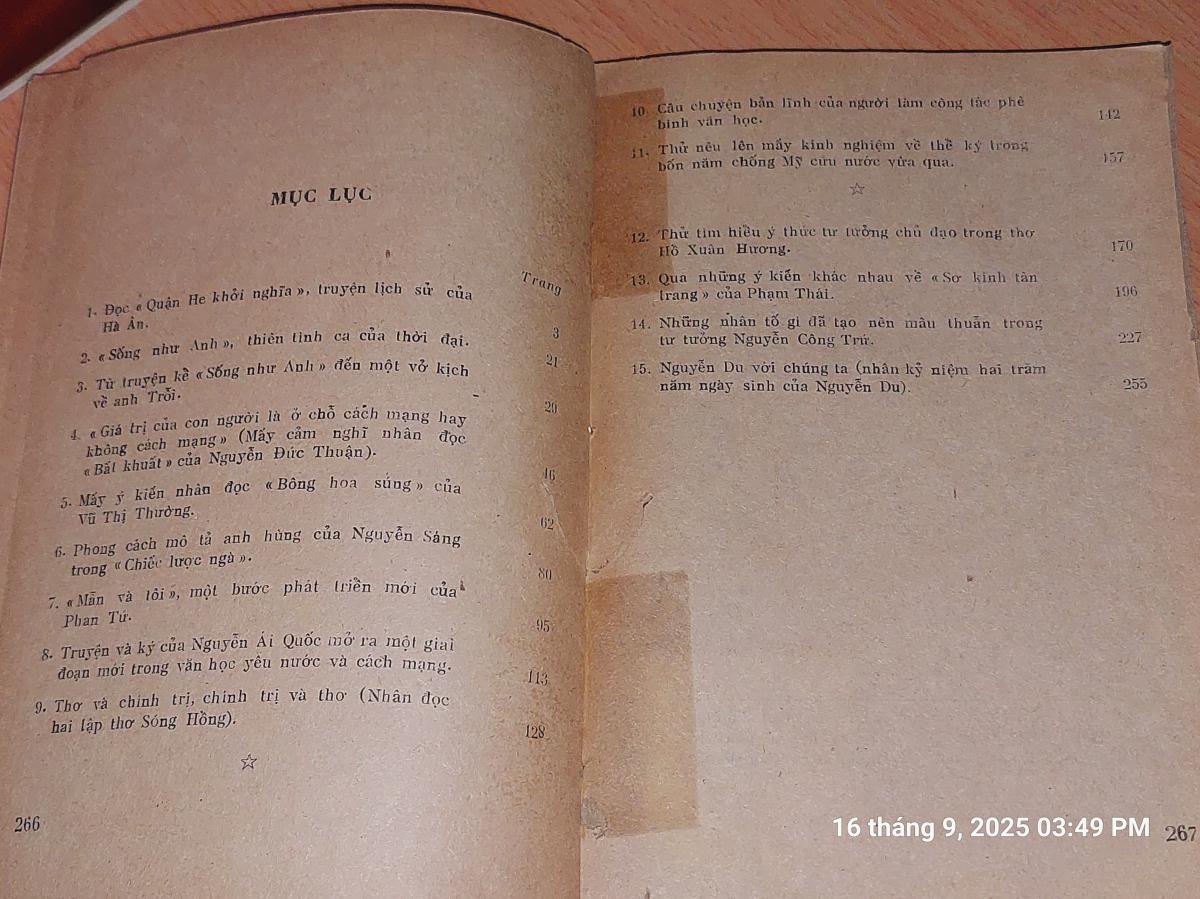 MỤC LỤC
Trang
1. Đọc «Quận He khởi nghĩa», truyện lịch sử của
Hà Ân.
3
2. «Sống như Anh», thiên tình ca của thời đại.
21
3. Từ truyện kể «Sống như Anh» đến một vở kịch
về anh Trỗi.
29
4. «Giá trị của con người là ở chỗ cách mạng hay
không cách mạng» (Mấy cảm nghĩ nhân đọc
«Bất khuất» của Nguyễn Đức Thuận).
46
5. Mấy ý kiến nhân đọc «Bông hoa súng» của
Vũ Thị Thường.
62
6. Phong cách mô tả anh hùng của Nguyễn Sáng
trong «Chiếc lược ngà».
80
7. «Mẫn và tôi», một bước phát triển mới của
Phan Tứ.
95
8. Truyện và ký của Nguyễn Ái Quốc mở ra một giai
đoạn mới trong văn học yêu nước và cách mạng.
113
9. Thơ và chính trị, chính trị và thơ (Nhân đọc
hai tập thơ Sóng Hồng).
128
☆
266
10. Câu chuyện bản lĩnh của người làm công tác phê
bình văn học.
142
11. Thử nêu lên mấy kinh nghiệm về thể ký trong
bốn năm chống Mỹ cứu nước vừa qua.
157
☆
12. Thử tìm hiểu ý thức tư tưởng chủ đạo trong thơ
Hồ Xuân Hương.
170
13. Qua những ý kiến khác nhau về «Sơ kính tân
trang» của Phạm Thái.
196
14. Những nhân tố gì đã tạo nên mâu thuẫn trong
tư tưởng Nguyễn Công Trứ.
227
15. Nguyễn Du với chúng ta (nhân kỷ niệm hai trăm
năm ngày sinh của Nguyễn Du).
255
16 tháng 9, 2025 03:49 PM
267